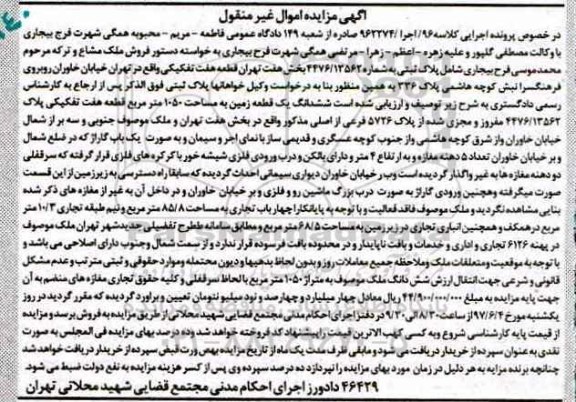 آگهی مزایده اموال غیر منقول
در خصوص پرونده اجرایی کلاسه ۹۶/اجرا /۹۶۲۲۷۴ صادره از شعبه ۱۴۹ دادگاه عمومی فاطمه – مریم – محبوبه همگی شهرت فرج بیجاری
با وکالت مصطفی گلپور و علیه زهره – اعظم – زهرا – مرتضی همگی شهرت فرج بیجاری به خواسته دستور فروش ملک مشاع و ترکه مرحوم
محمدموسی فرج بیجاری شامل پلاک ثبتی به شماره ۴۴۷۶/۱۳۵۶۲ بخش هفت تهران قطعه هفت تفکیکی واقع در تهران خیابان خاوران روبروی
فرهنگسرا نبش کوچه هاشمی پلاک ۳۳۶ به همین منظور بنا به درخواست وکیل خواهانها پلاک ثبتی فوق الذکر پس از ارجاع به کارشناس
رسمی دادگستری به شرح زیر توصیف و ارزیابی شده است ششدانگ یک قطعه زمین به مساحت ۱۰۵۰ متر مربع قطعه هفت تفکیکی پلاک
۴۴۷۶/۱۳۵۶۲ مفروز و مجزی شده از پلاک ۵۷۲۶ فرعی از اصلی مذکور واقع در بخش هفت تهران و ملک موصوف جنوبی و سه بر از شمال
خیابان خاوران واز شرق کوچه هاشمی واز جنوب کوچه عسگری و قدیمی ساز با نمای اجر و سیمان و به صورت یک باب گاراژ که در ضلع شمال
و بر خیابان خاوران تعداد ۵ دهنه مغازه و به ارتفاع ۴ متر و دارای بالکن و درب ورودی فلزی شیشه خور با کرکره های فلزی قرار گرفته که سرقفلی
دو دهنه مغازه ها به غیر واگذار گردیده است وبر خیابان خاوران دیواری سیمانی احداث گردیده که سابقا راه دسترسی به زیرزمین از این قسمت
صورت میگرفته وهچنین ورودی گاراژ به صورت درب بزرگ ماشین رو و فلزی و بر خیابان خاوران و در داخل آن به غیر از مغازه های ذکر شده
بنایی مشاهده نگردید و ملک موصوف فاقد فعالیت و با توجه به پایانکار چهار باب تجاری به مساحت ۸۵/۸ متر مربع و نیم طبقه تجاری ۱۰/۳ متر
مربع در همکف و همچنین انباری تجاری در زیر زمین به مساحت ۶۸/۵ متر مربع و مطابق سامانه ططرح تفصیلی جدیدشهر تهران ملک موصوف
در پهنه ۶۱۲۶ تجاری و اداری و خدمات و بافت ناپایدار و در محدوده بافت فرسوده قرار ندارد و از سمت شمال وجنوب دارای اصلاحی می باشد و
با توجه به موقعیت و متعلقات ملک وملاحظه جمیع معاملات روز و بدون لحاظ بدهیها ودیون محتمله وموارد حقوقی و ثبتی مترتب و عدم مشکل
قانونی و شرعی جهت انتقال ارزش شش دانگ ملک موصوف به متراژ ۱۰۵۰ متر مربع با لحاظ سرقفلی و کلیه حقوق تجاری مغازه های منضم به آن
جهت پایه مزایده به مبلغ ریال معادل چهار میلیارد و چهار صد و نود میلیو نتومان تعیین و براورد گردیده که مقرر گردید در روز
یکشنبه مورخ ۹۷/۶/۴ از ساعت ۸/۳۰ الی ۹/۳۰ در دفتر اجرای احکام مدنی مجتمع قضایی شهید محلاتی از طریق مزایده به فروش برسد و مزایده
از قیمت پایه کارشناسی شروع وبه کسی که بالاترین قیمت راپیشنهاد کد فروخته خواهد شد وده درصد بهای مزایده فی المجلس به صورت
نقدی به عنوان سپرده از خریدار دریافت می شود و مابقی ظرف مدت یک ماه از تاریخ مزایده بهص ورت قبض سپرده از خریدار دریافت خواهد شد
چنانچه برنده مزایه به هر دلیل در زمان مورد بهای مزایده را نپردازد ده درصد سپرده وی پس از کسر هزینه مزایده به نفع دولت ضبط می شود.
۴۶۴۲۹ دادورز اجرای احکام مدنی مجتمع قضایی شهید محلاتی تهران